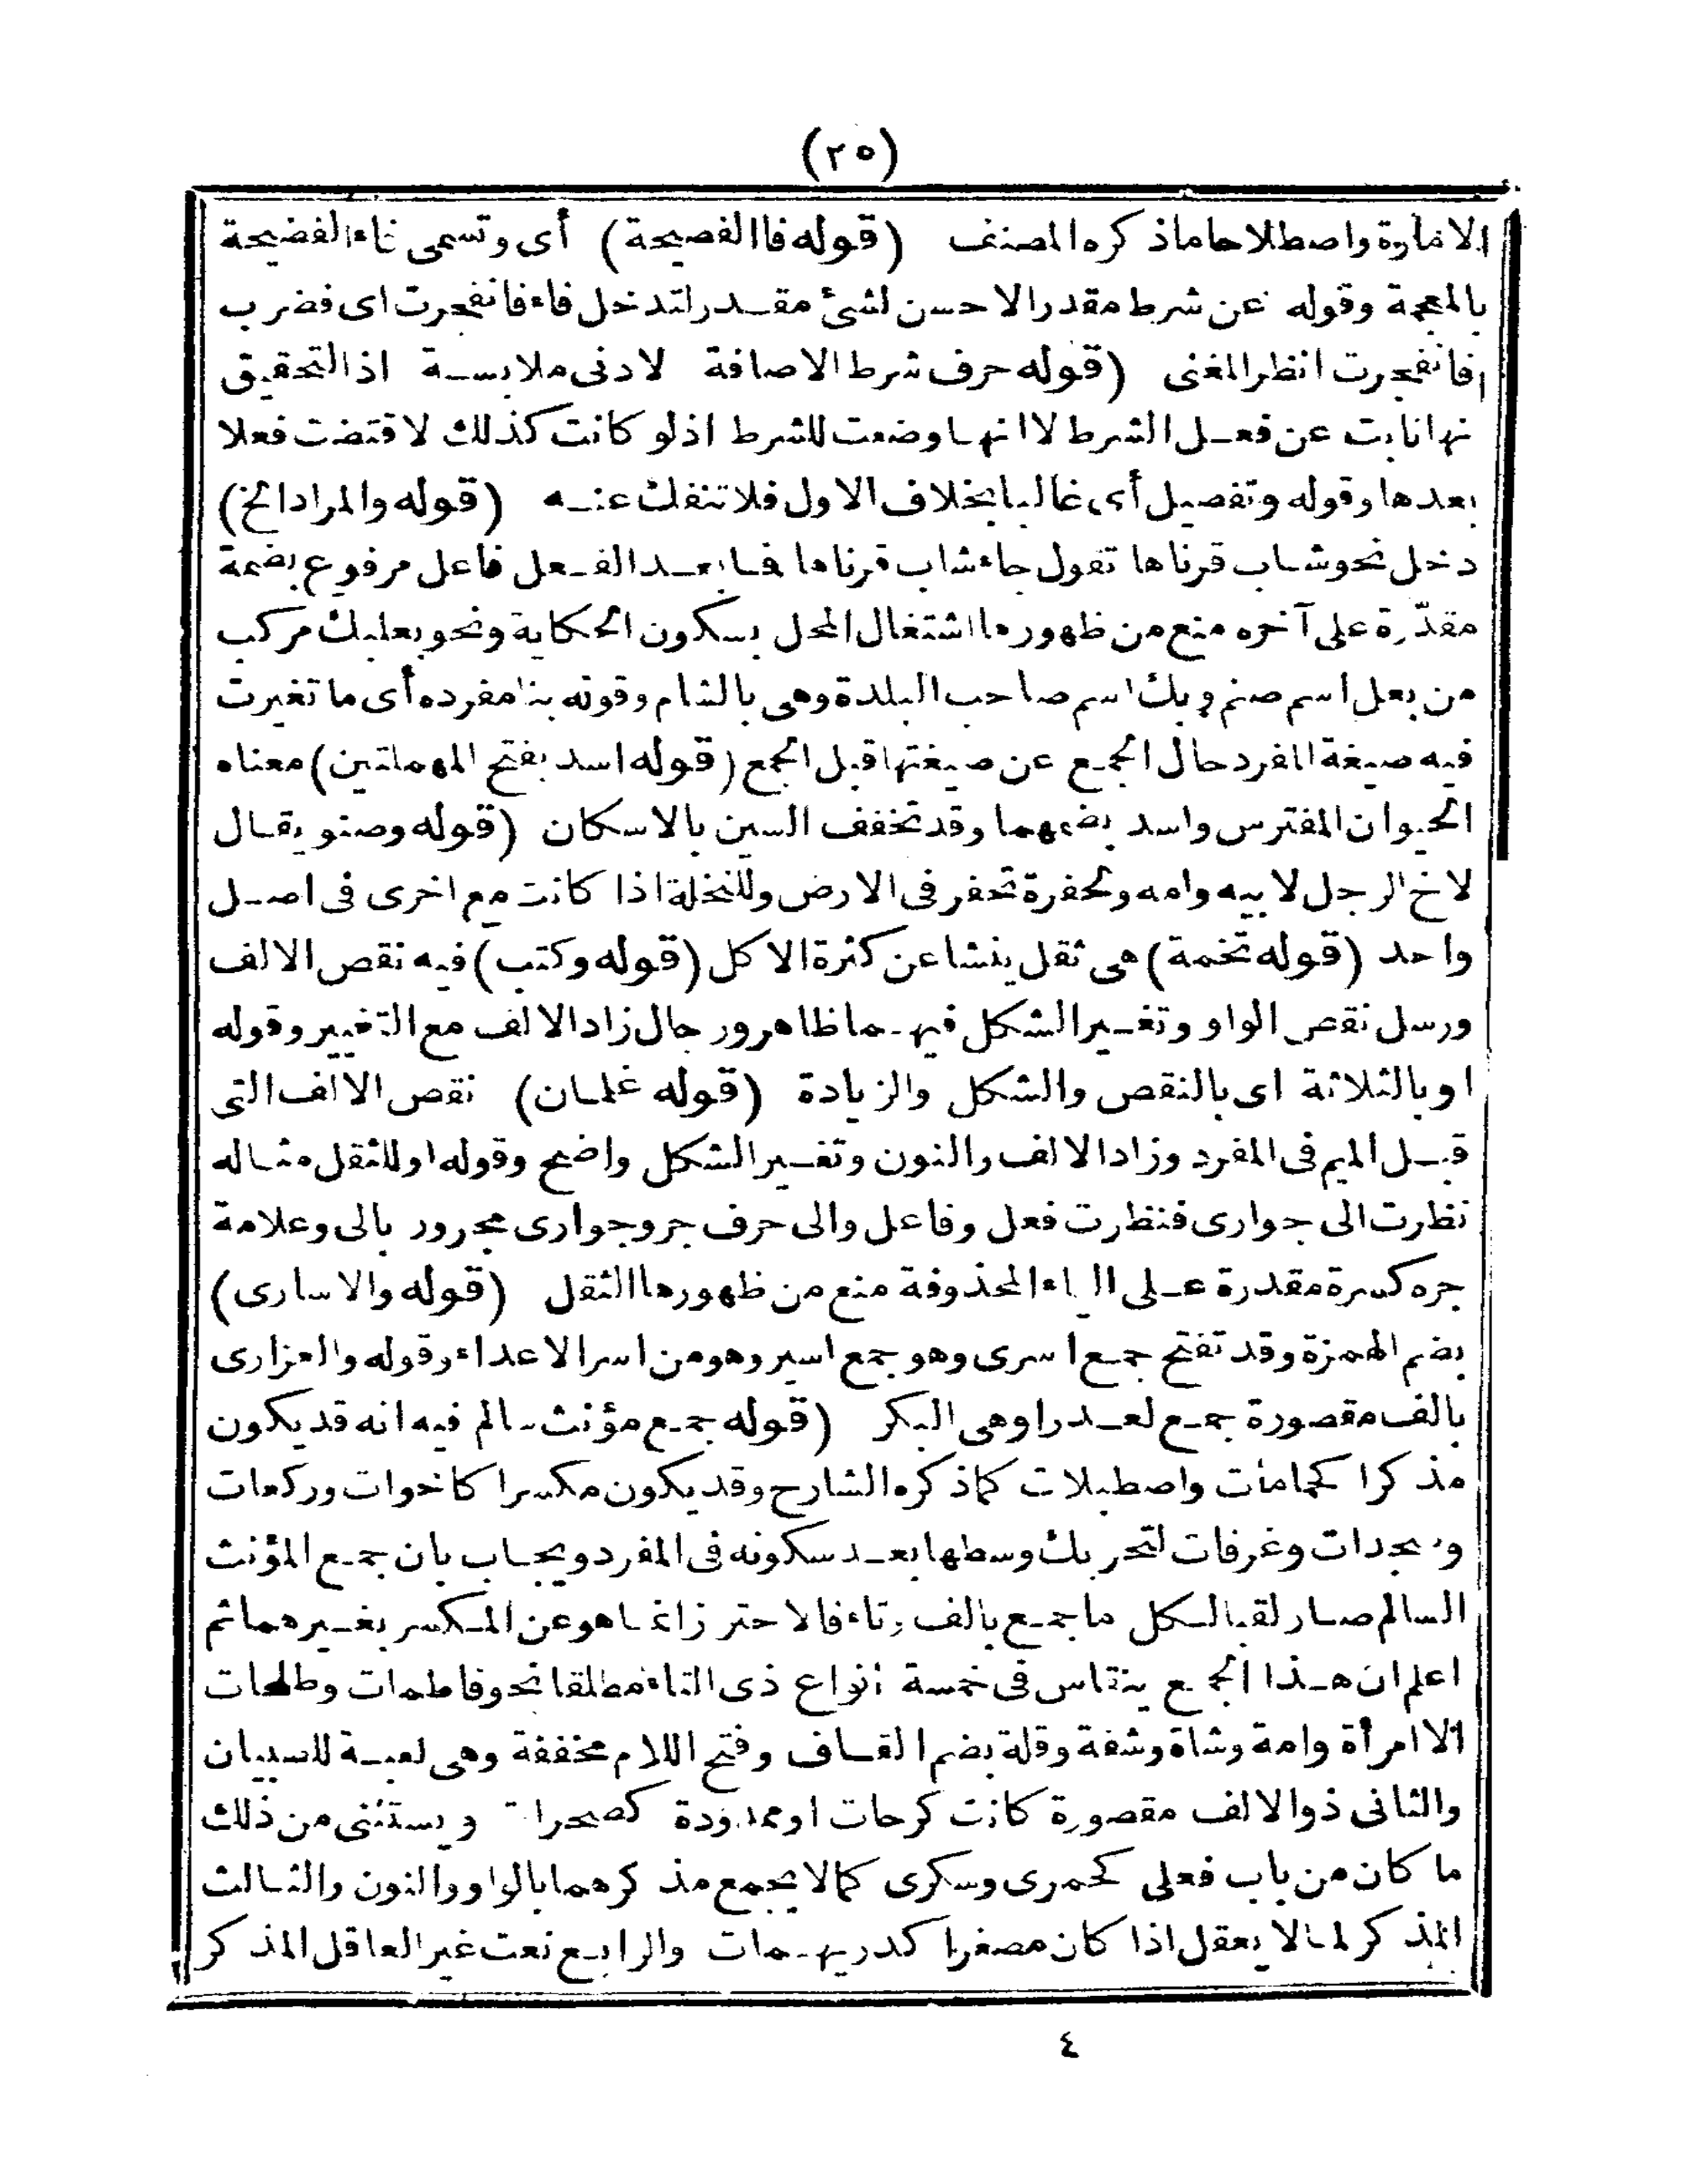 (٢٥)
الامارة واصطلاحا ماذكره المصنف (قوله فاالفصيحة) أى وتسمى فاء الفضيحة
بالمعجمة وقوله عن شرط مقدر الاحسن لشئ مقدر لتدخل فاء فانفجرت اى فضرب
فانفجرت انظر المغنى (قوله حرف شرط الاصافة لادنى ملابسة اذ التحقيق
نها نابت عن فعل الشرط لا انها وضعت للشرط اذلو كانت كذلك لاقتضت فعلا
بعدها وقوله وتفصيل أى غالبا بخلاف الاول فلا تنفك عنه (قوله والمراد الخ)
دخل نحو شاب قرناها تقول جاء شاب قرناها فما بعد الفعل فاعل مرفوع بضمة
مقدّرة على آخره منع من ظهورها اشتغال المحل بسكون الحكاية ونحو بعلبك مركب
من بعل اسم صنم وبك اسم صاحب البلدة وهى بالشام وقوله بنا مفرده أى ما تغيرت
فيه صيغة المفرد حال الجمع عن صيغتها قبل الجمع (قوله اسد بفتح المهملتين) معناه
الحيوان المفترس واسد بضمهما وقد تخفف السين بالاسكان (قوله وصنو يقال
لاخ الرجل لابيه وامه ولحفرة تحفر فى الارض وللنخلة اذا كانت مع اخرى فى اصل
واحد (قوله تخمة) هى ثقل ينشا عن كثرة الاكل (قوله وكتب) فيه نقص الالف
ورسل نقص الواو وتغيير الشكل فيهما ظاهر ورجال زاد الالف مع التغيير وقوله
او بالثلاثة اى بالنقص والشكل والزيادة (قوله غلمان) نقص الالف التى
قبل الميم فى المفرد وزاد الالف والنون وتغيير الشكل واضح وقوله او للثقل مثاله
نظرت الى جوارى فنظرت فعل وفاعل والى حرف جر وجوارى مجرور بالى وعلامة
جره كسرة مقدرة على الياء المحذوفة منع من ظهورها الثقل (قوله والاسارى)
بضم الهمزة وقد تفتح جمع اسرى وهو جمع اسير وهو من اسر الاعداء وقوله والعزارى
بالف مقصورة جمع لعدرا وهى البكر (قوله جمع مؤنث سالم فيه انه قد يكون
مذكرا كحمامات واصطبلات كماذكره الشارح وقد يكون مكسرا كاخوات وركعات
وسجدات وغرفات لتحريك وسطها بعد سكونه فى المفرد ويجاب بان جمع المؤنث
السالم صار لقبا لكل ما جمع بالف وتاء فالاحتراز انما هو عن المكسر بغيرهما ثم
اعلم ان هذا الجمع ينقاس فى خمسة انواع ذى التاء مطلقا نحو فاطمات وطلحات
الا امرأة وامة وشاة وشفة وقلة بضم القاف وفتح اللام مخففة وهى لعبة للصبيان
والثانى ذو الالف مقصورة كانت كرحات او ممدودة كصحرات ويستثنى من ذلك
ما كان من باب فعلى كحمرى وسكرى كمالا يجمع مذكرهما بالواو والنون والثالث
المذكر لمالا يعقل اذا كان مصغرا كدريهمات والرابع نعت غير العاقل المذكر
٤